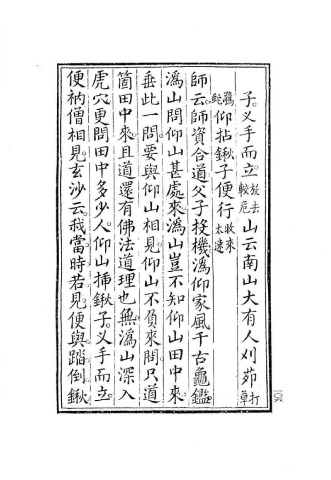 子叉手而立放去較危山云南山大有人刈茆打草
驚蛇仰拈鍬子便行收來太速
師云。師資合道父子投機。溈仰家風千古龜鑑。
溈山問仰山甚處來。溈山豈不知仰山田中來。
垂此一問。要與仰山相見。仰山不負來問。只道
箇田中來。且道還有佛法道理也無。溈山深入
虎穴更問田中多少人。仰山插鍬子。叉手而立。
便衲僧相見。玄沙云。我當時若見便與踏倒鍬